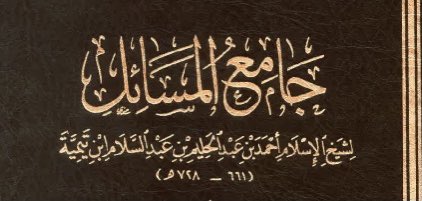 جَامِعُ المَسَائِل
لِشَيْخِ الإِسْلَامِ أَحْمَدَ بْنِ عَبْدِ الحَلِيمِ بْنِ عَبْدِ السَّلَامِ ابْنِ تَيْمِيَّةَ
(٦٦١ - ٧٢٨هـ)